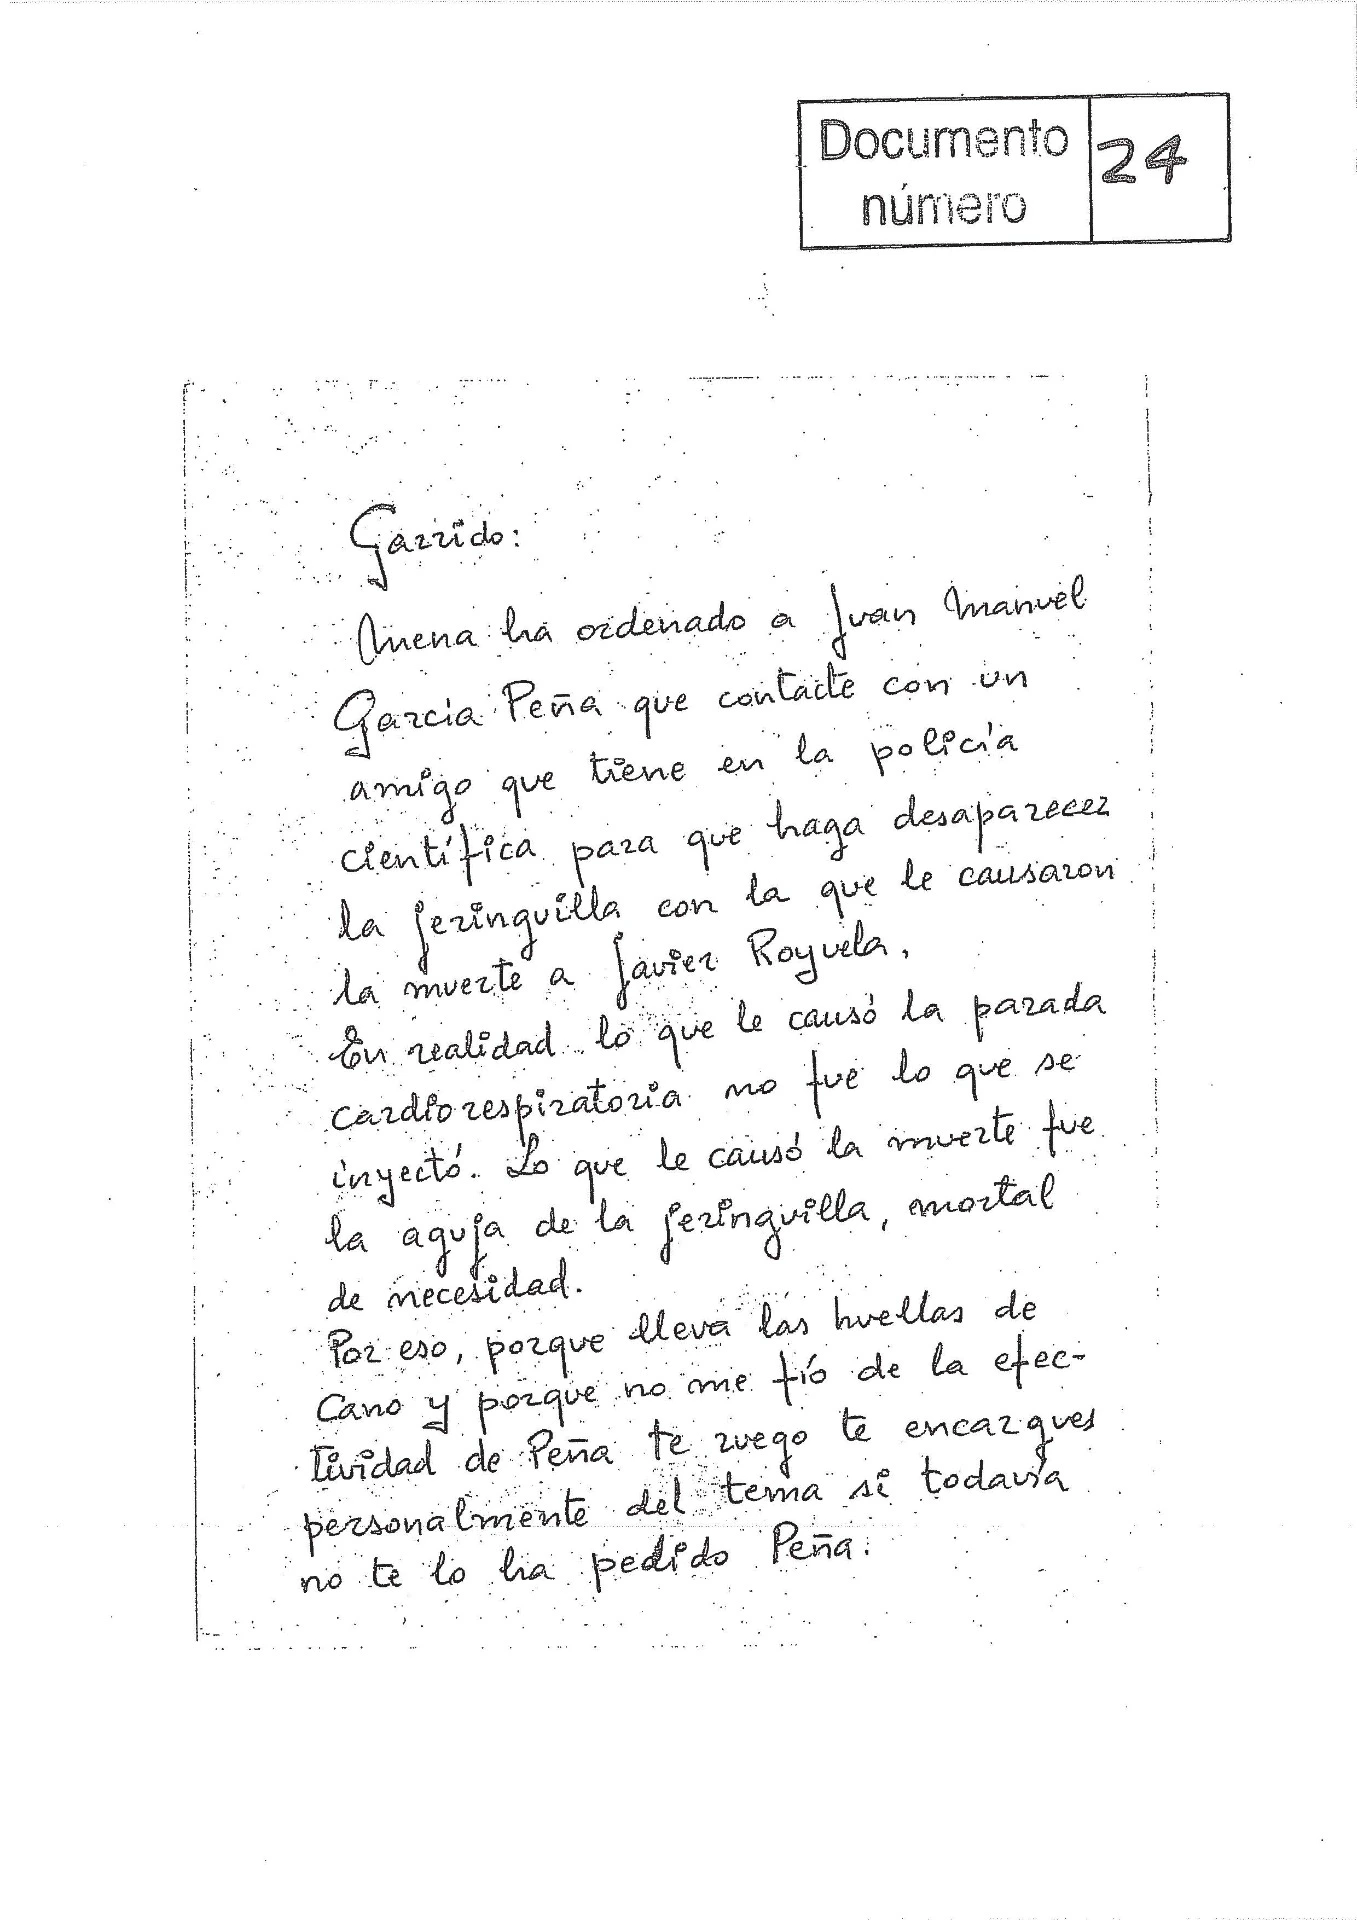 Documento
número
24
Garrido:
Mena ha ordenado a Juan Manuel
García Peña que contacte con un
amigo que tiene en la policía
científica para que haga desaparecer
la jeringuilla con la que le causaron
la muerte a Javier Royuela.
En realidad lo que le causó la parada
cardiorespiratoria no fue lo que se
inyectó. Lo que le causó la muerte fue
la aguja de la jeringuilla, mortal
de necesidad.
Por eso, porque lleva las huellas de
Cano y porque no me fío de la efec-
tividad de Peña te ruego te encargues
personalmente del tema si todavía
no te lo ha pedido Peña.